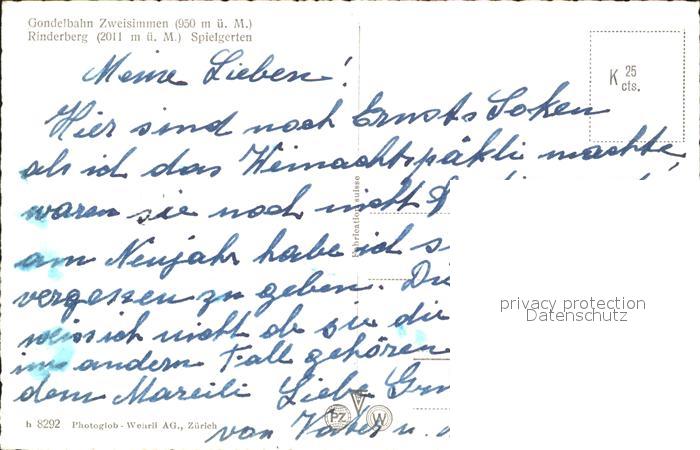 Gondelbahn Zweisimmen (950 m ü. M.)
Rinderberg (2011 m ü. M.) Spielgerten
K 25 cts.
Meine Lieben!
Hier sind noch Ernsts Soken
als ich das Weinachtspäkli machte,
waren sie noch nicht
am Neujahr habe ich s
vergessen zu geben. Die
weiss ich nicht ob sie die
im andern Fall gehören
dem Mareili Liebe Gr
von Vater u.
Fabrication suisse
privacy protection
Datenschutz
PZ W
h 8292 Photoglob-Wehrli AG., Zürich